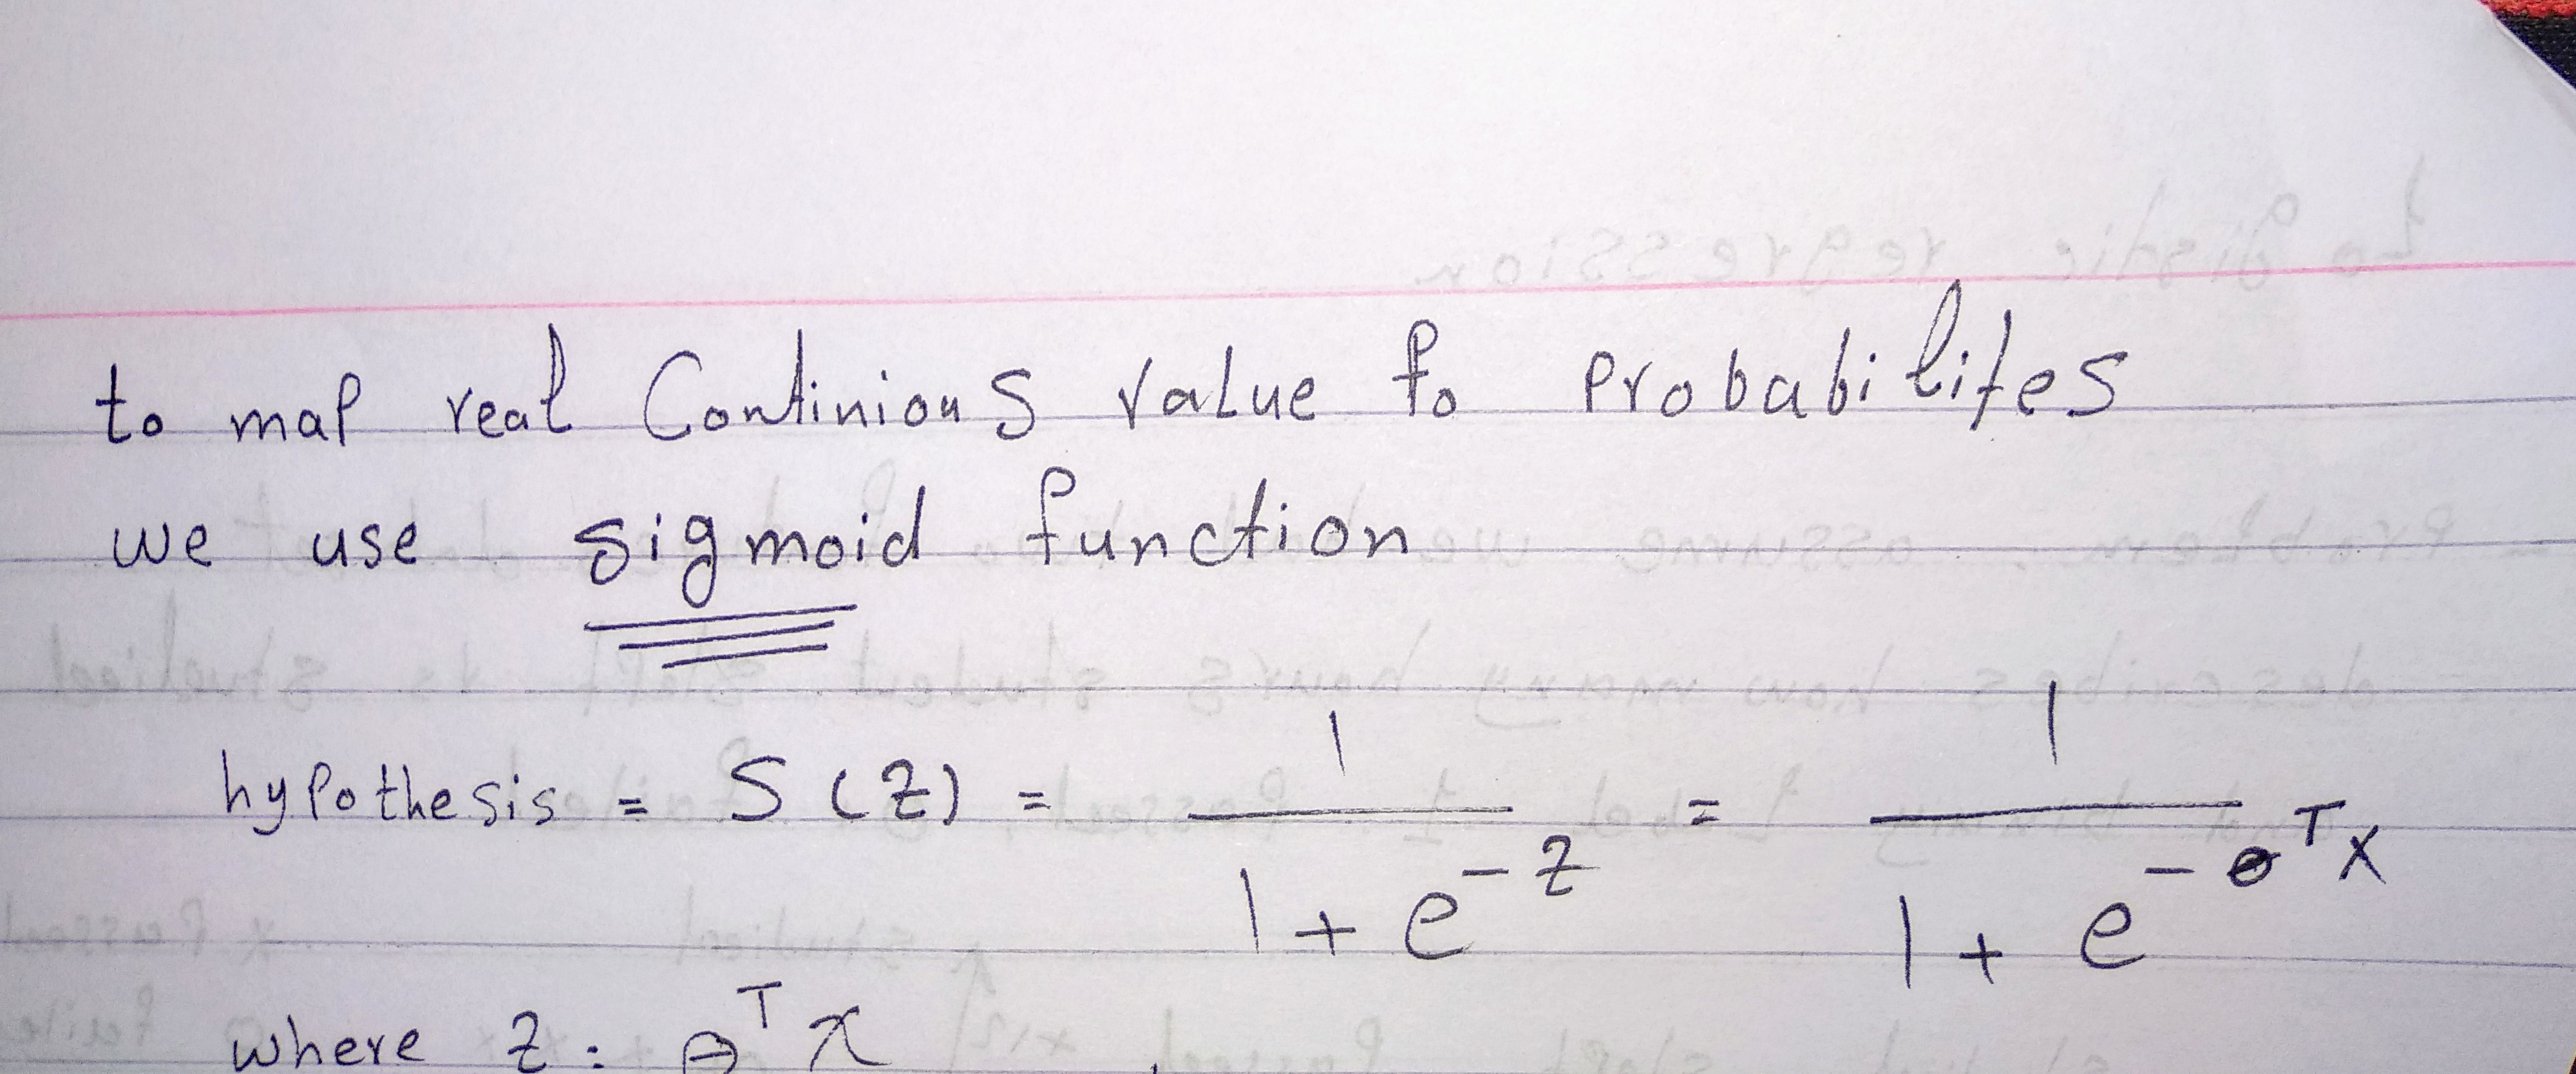 to map real Continious value to probabilites
we use sigmoid function
hypothesis = S(z) = 1 / (1 + e^{-z}) = 1 / (1 + e^{-θ^T x})
where z : θ^T x